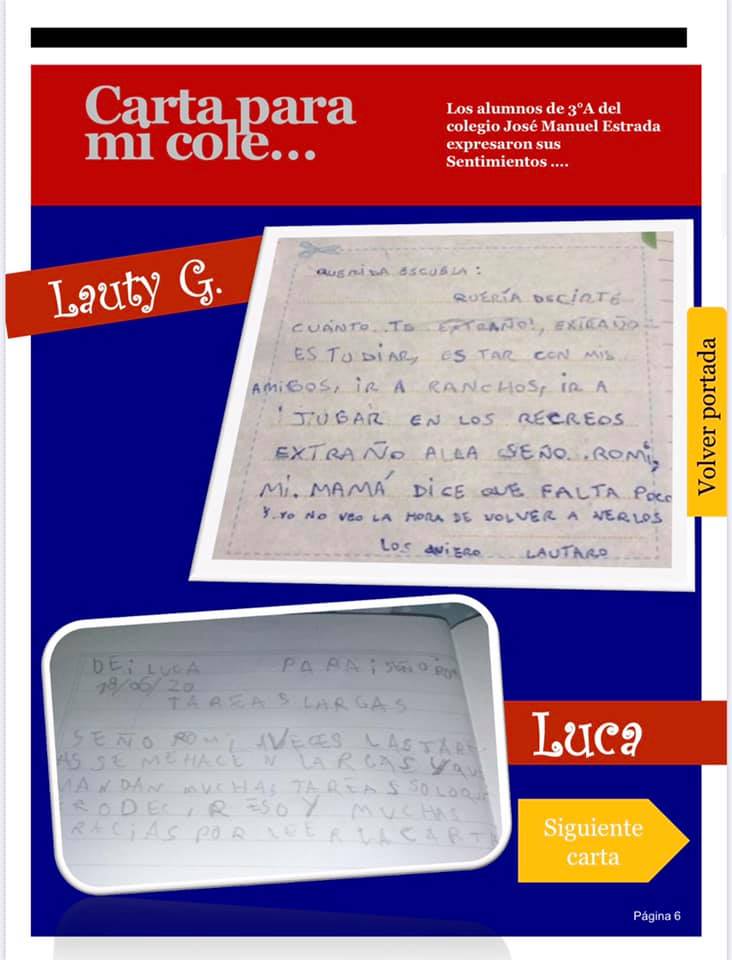 Carta para
mi cole...
Los alumnos de 3°A del
colegio José Manuel Estrada
expresaron sus
Sentimientos ....
Lauty G.
QUERIDA ESCUELA:
QUERÍA DECIRTE
CUÁNTO..TE EXTRAÑO!, EXTRAÑO
ESTUDIAR, ESTAR CON MIS
AMIGOS, IR A RANCHOS, IR A
JUGAR EN LOS RECREOS
EXTRAÑO ALLA SEÑO..ROMI,
MI. MAMÁ DICE QUE FALTA POCO
Y..YO NO VEO LA HORA DE VOLVER A VERLOS
LOS QUIERO LAUTARO
Volver portada
DE: LUCA PARA: SEÑO ROM
18/06/20
TAREAS LARGAS
SEÑO ROMI AVECES LAS TARE
AS SE MEHACEN LARGAS Y QUE
MANDAN MUCHAS TAREAS SOLO QUI
ERO DECIR ESO Y MUCHAS
RACIAS POR LEER LA CARTA
Luca
Siguiente
carta
Página 6